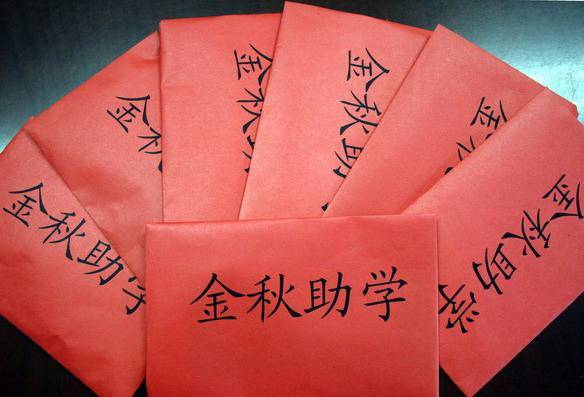 金秋助学
金秋
金秋助
金秋助学
金秋
金秋助学
金秋助学